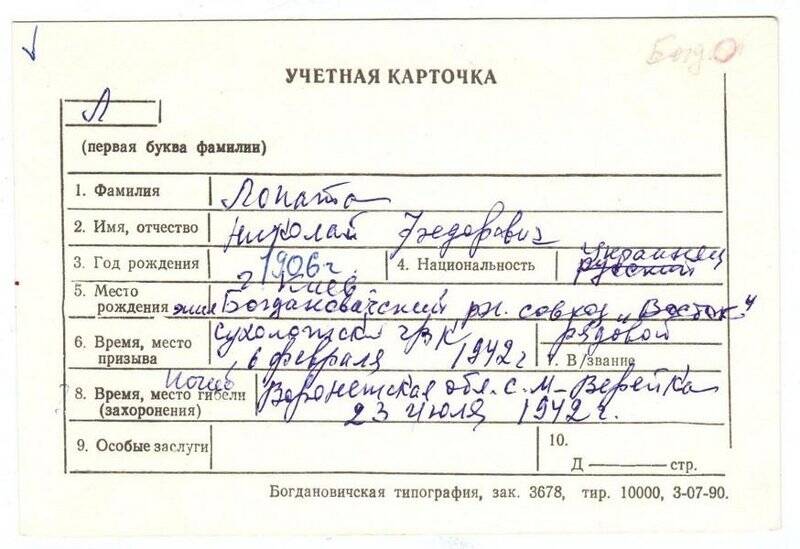 Богд. О
УЧЕТНАЯ КАРТОЧКА
Л
(первая буква фамилии)
1. Фамилия Лопата
2. Имя, отчество Николай Федорович
3. Год рождения 1906 г. 4. Национальность украинец русский
г Киев
5. Место рождения Богдановичский рн. совхоз „Восток"
6. Время, место призыва Сухоложская ГВК рядовой
6 февраля 1942 г 7. В/звание
Погиб
8. Время, место гибели Воронежская обл. с. М-Верейка
(захоронения) 23 июля 1942 г.
9. Особые заслуги 10.
Д стр.
Богдановичская типография, зак. 3678, тир. 10000, 3-07-90.